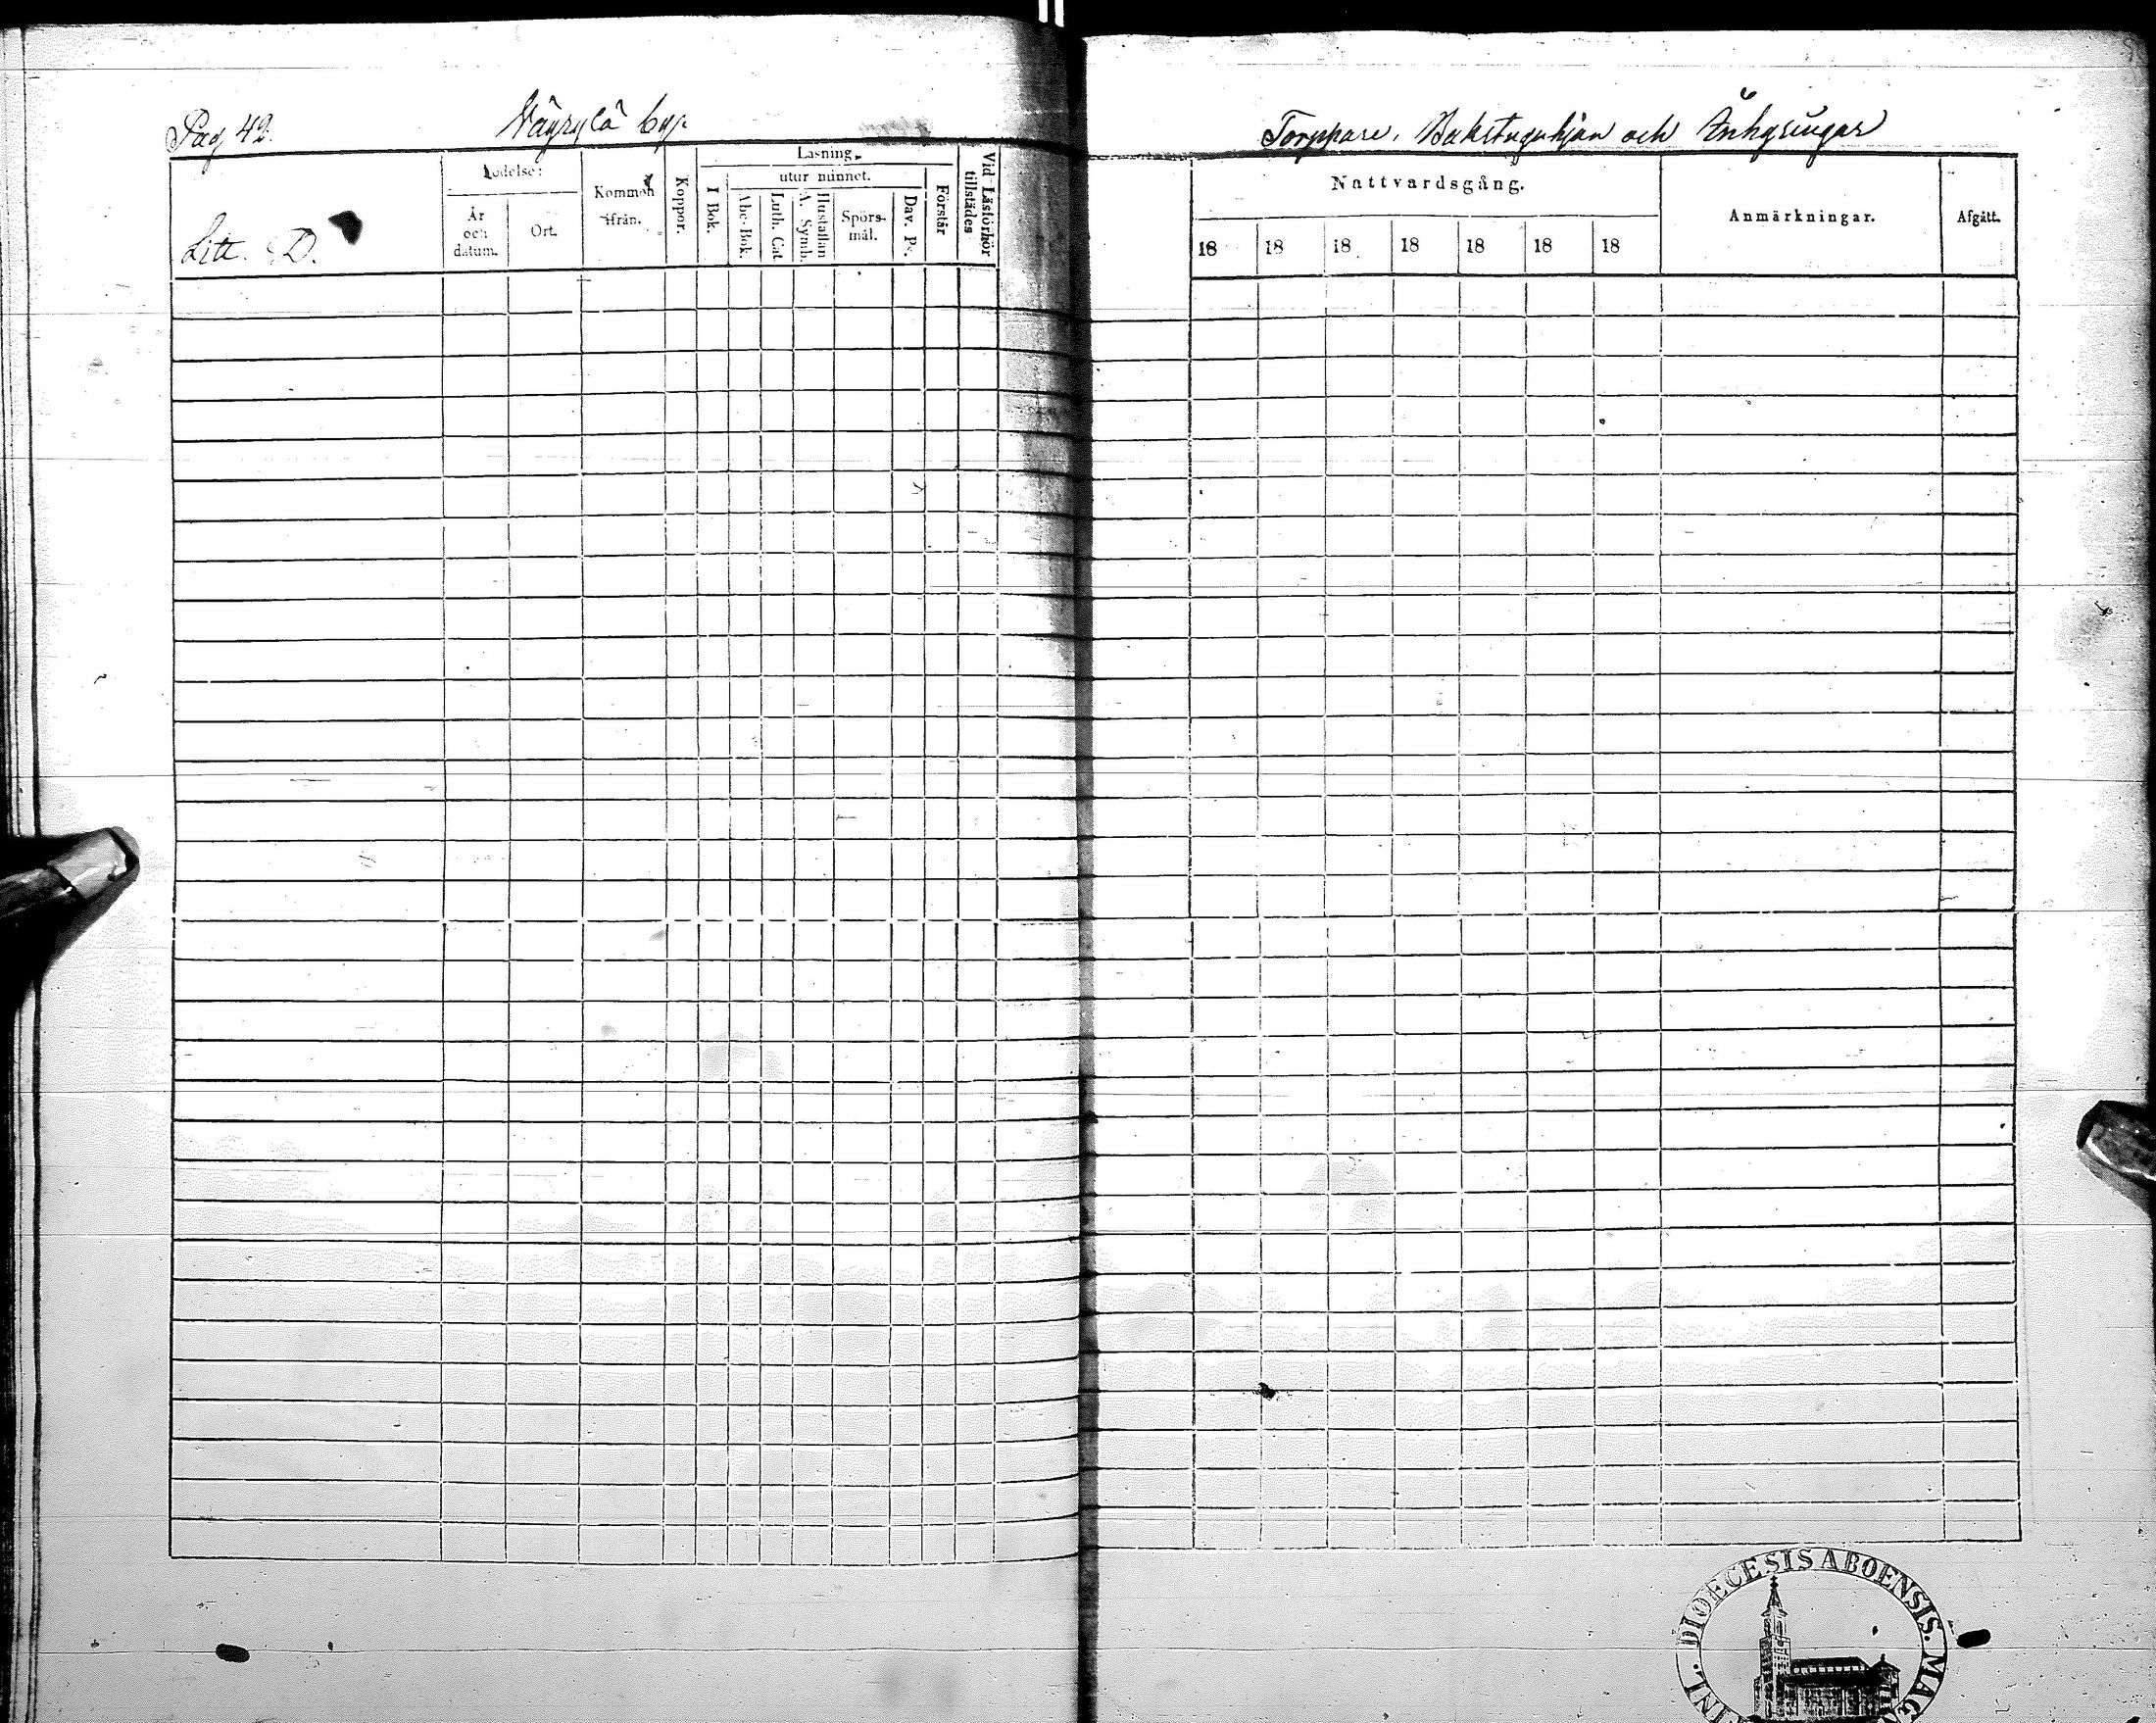 Pag 42.
by.
Litt. D.
Födelse:
År
och
datum.
Ort.
Kommen
ifrån.
Koppor.
Läsning.
I Bok.
utur minnet.
Abc-Bok.
Luth. Cat.
Hustaflan
A. Symb.
Spörs-
mål.
Dav. Ps.
Förstår
Vid Läsförhör
tillstädes
Torppare, Backstuguhjon och Inhysingar
Nattvardsgång.
18 18 18 18 18 18 18
Anmärkningar.
Afgått.
DIOECESIS ABOENSIS. MAG